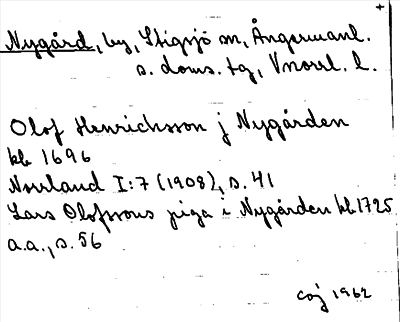 +
Nygård, by, Stigsjö sn, Ångermanl.
s. doms. tg, Vnorrl. l.
Olof Henrichsson j Nygården
kb 1696
Norrland I:7 (1908), s. 41
Lars Olofssons piga i Nygården kb 1725
a.a., s. 56
coj 1962